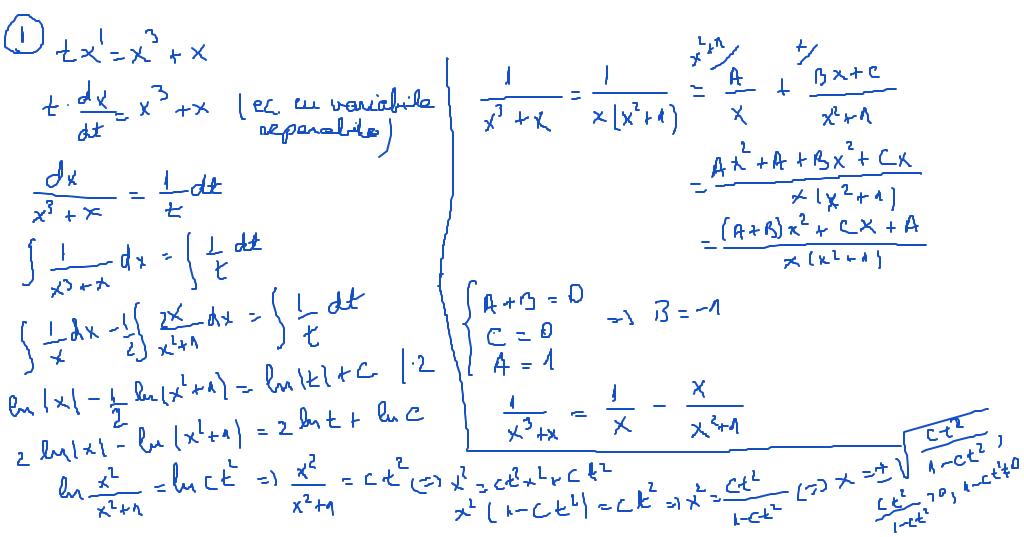 1
tx' = x³ + x
t · dx/dt = x³ + x (ec. cu variabile
separabile)
dx/(x³ + x) = 1/t dt
∫ 1/(x³ + x) dx = ∫ 1/t dt
∫ 1/x dx - 1/2 ∫ 2x/(x²+1) dx = ∫ 1/t dt
ln |x| - 1/2 ln (x²+1) = ln |t| + C | · 2
2 ln |x| - ln (x²+1) = 2 ln t + ln C
ln x²/(x²+1) = ln ct² => x²/(x²+1) = ct² (=) x² = ct²x² + ct²
x² (1 - ct²) = ct² => x² = ct²/(1-ct²) (=> x = ± √(ct²/(1-ct²)),
ct²/(1-ct²) > 0, 1-ct² ≠ 0
1/(x³ + x) = 1/(x(x²+1)) = x²+1/ A/x + x/ (Bx + C)/(x²+1)
= (Ax² + A + Bx² + Cx)/(x(x²+1))
= ((A+B)x² + Cx + A)/(x(x²+1))
{ A + B = 0 => B = -1
C = 0
A = 1
1/(x³+x) = 1/x - x/(x²+1)